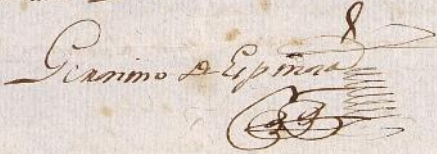 Geronimo de Espinosa